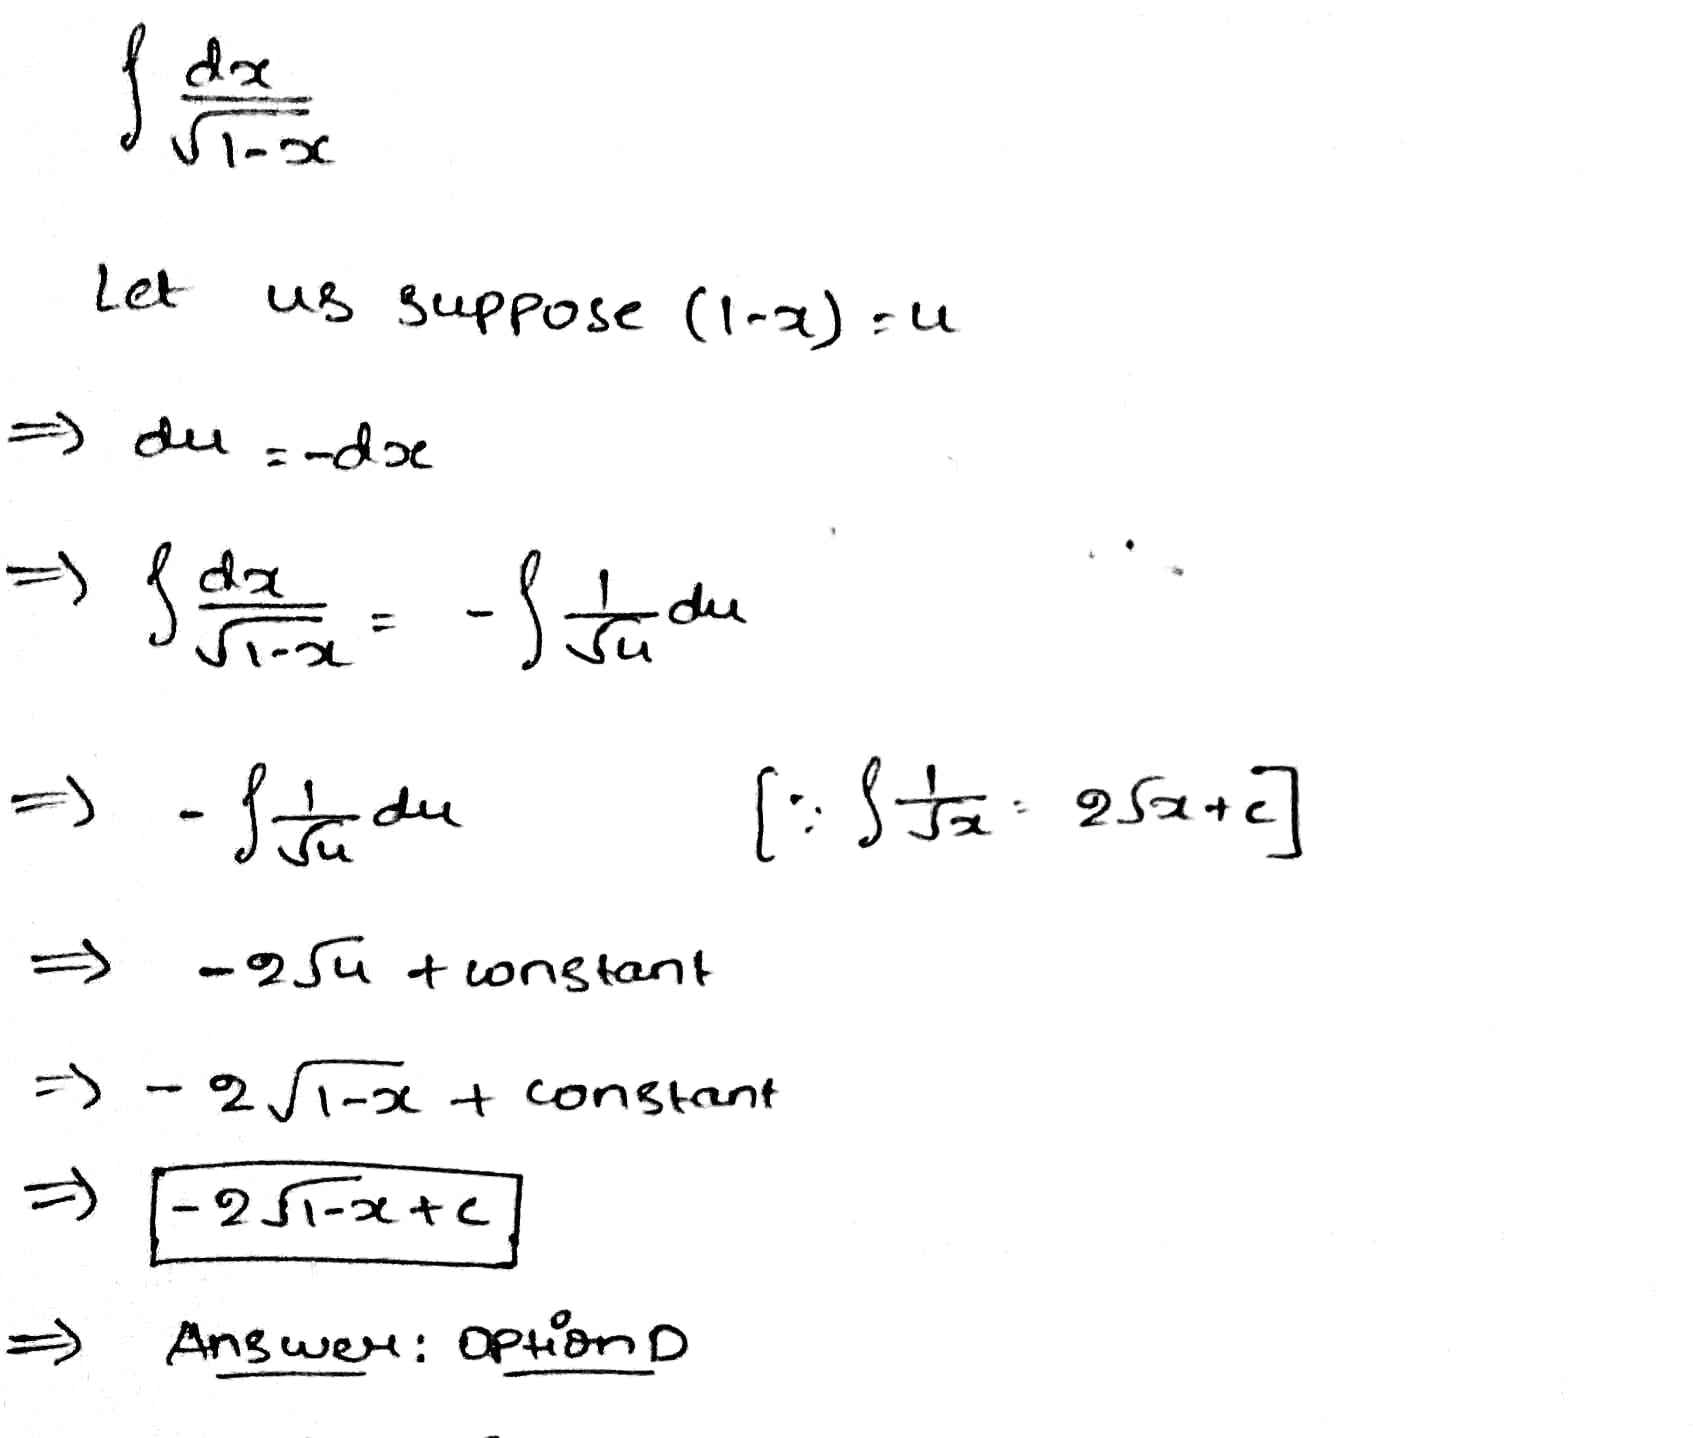 ∫ dx/√1-x
Let us suppose (1-x) = u
⇒ du = -dx
⇒ ∫ dx/√1-x = -∫ 1/√u du
⇒ -∫ 1/√u du [∵ ∫ 1/√x = 2√x + c]
⇒ -2√u + constant
⇒ -2√1-x + constant
⇒ -2√1-x + c
⇒ Answer: Option D